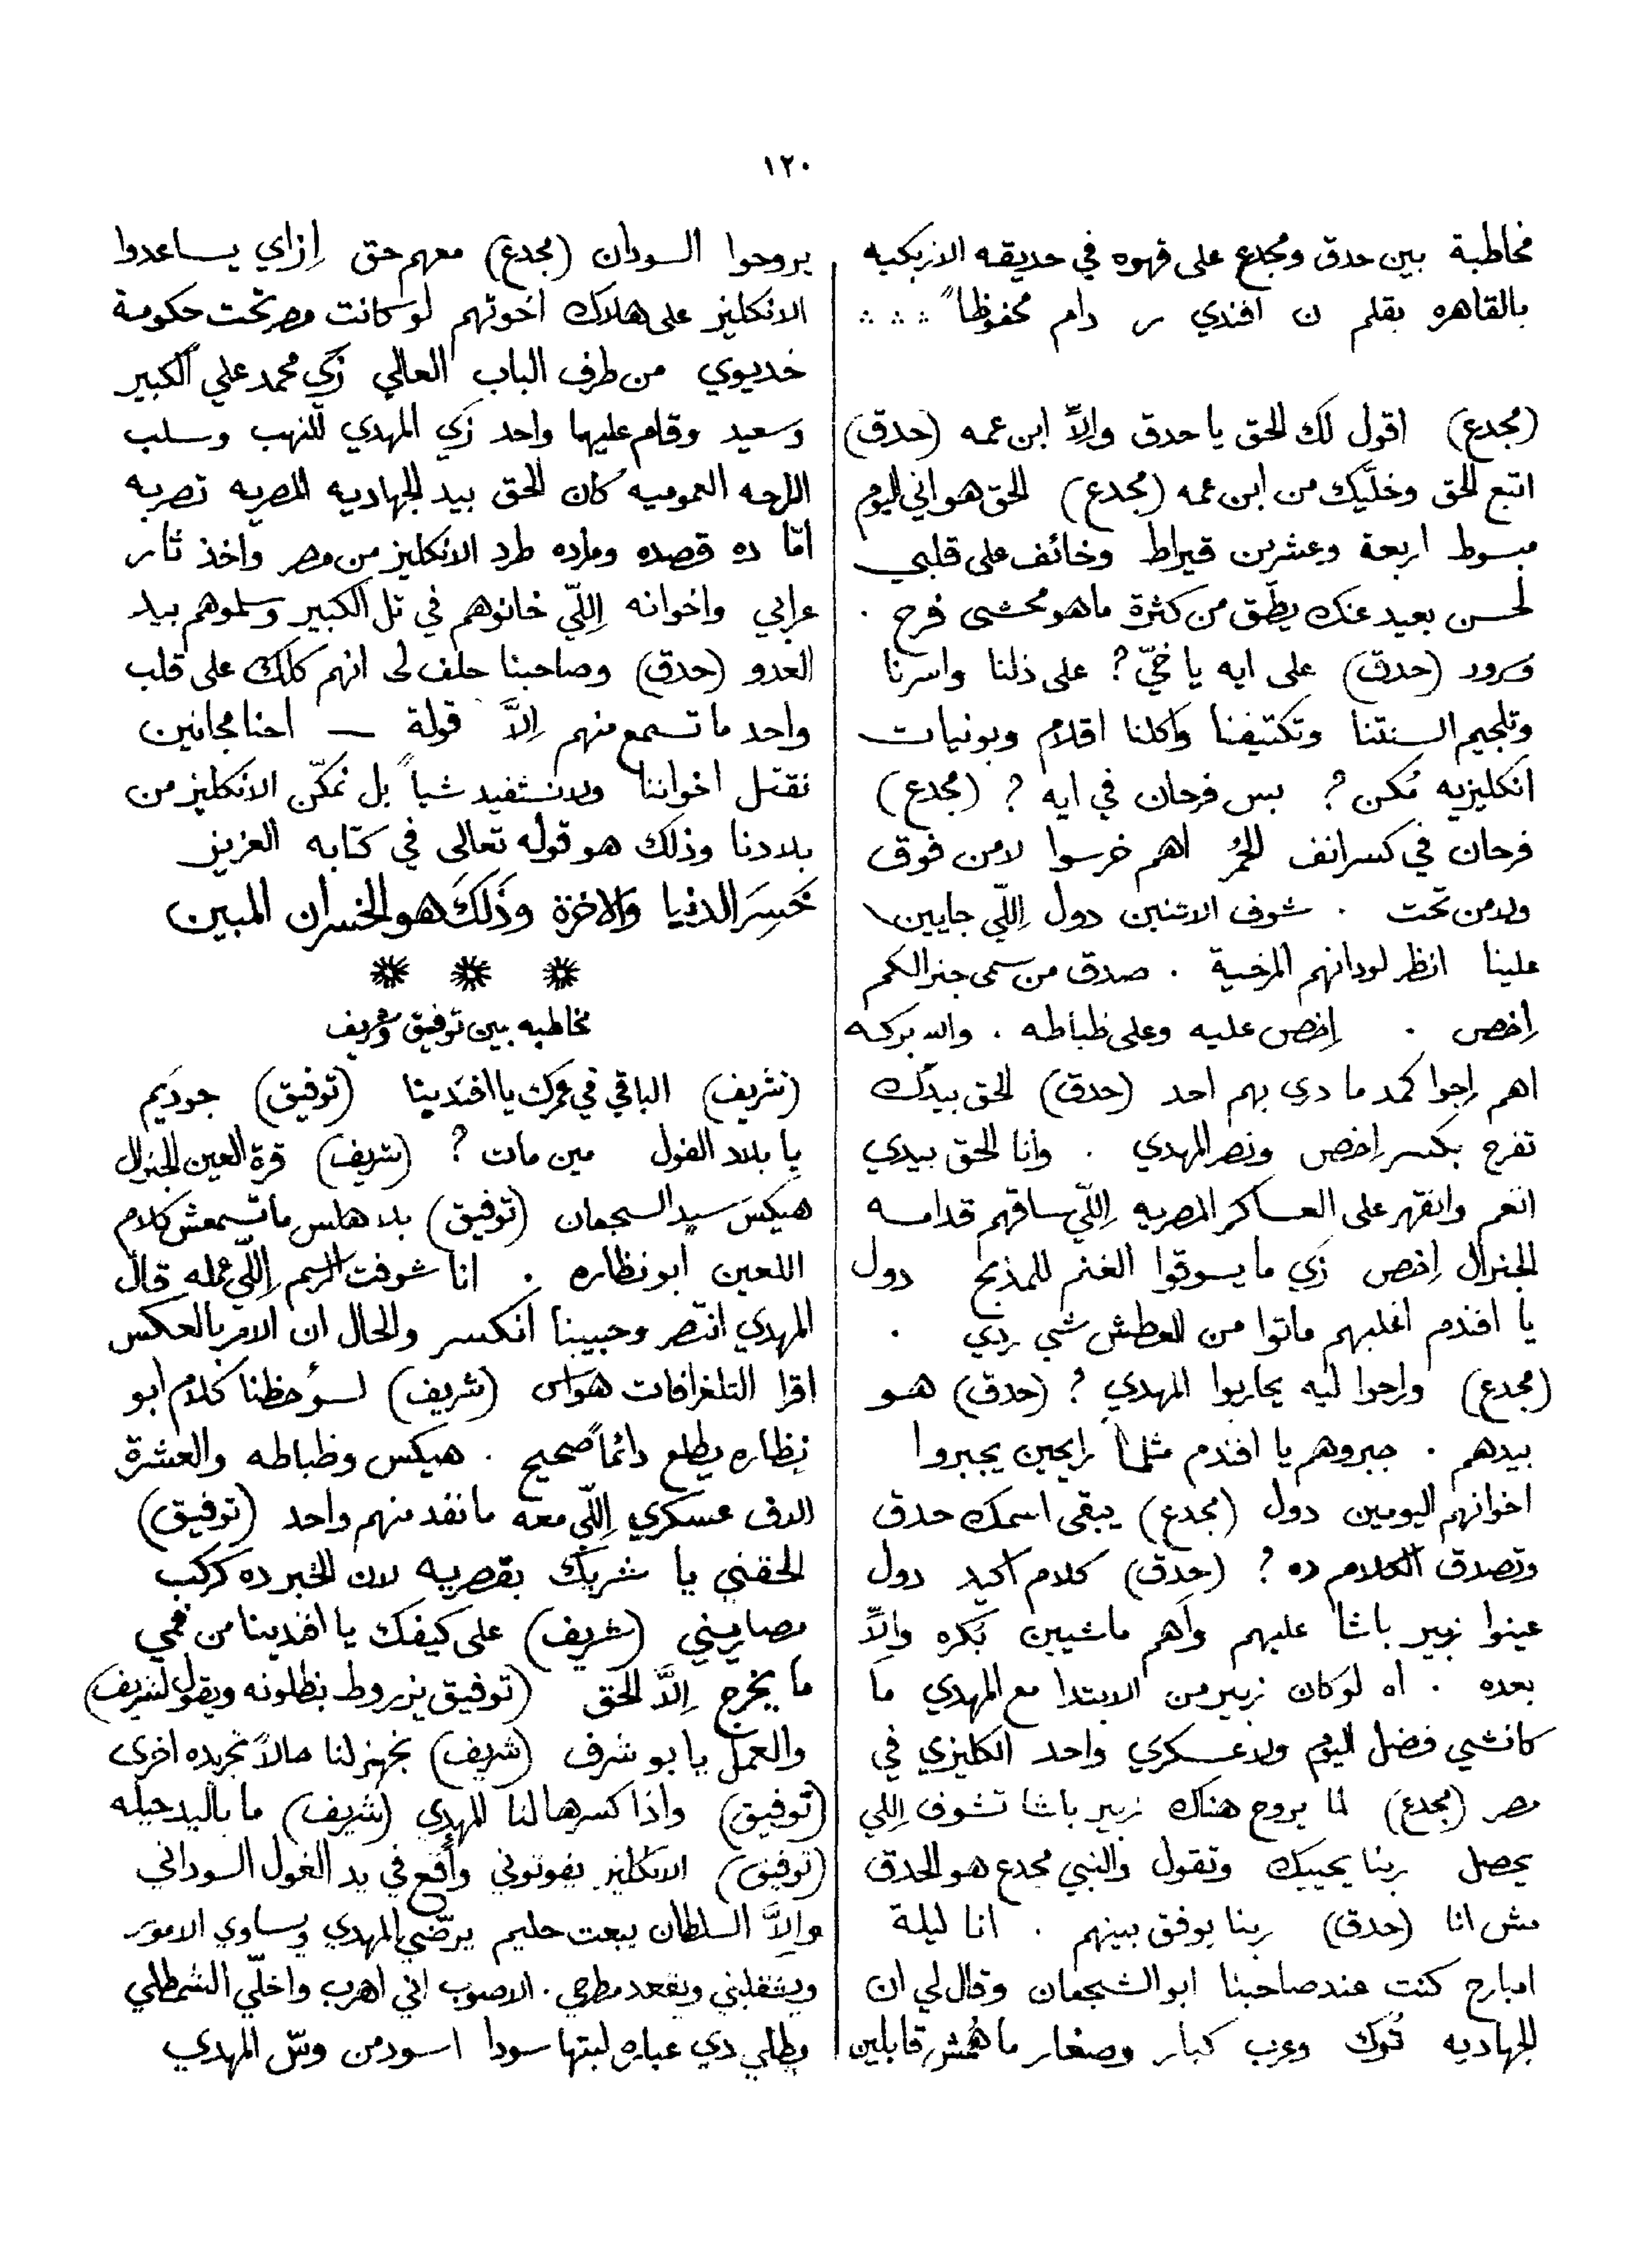 ١٢٠
مخاطبة بين حدق ومجدع على قهوه في حديقه الازبكيه
بالقاهره بقلم ن افندي س دام محفوظاً
(مجدع) اقول لك الحق يا حدق والاّ ابن عمه (حدق)
اتبع الحق وخلّيك من ابن عمه (مجدع) الحق هو اني اليوم
مبسوط اربعة وعشرين قيراط وخائف على قلبي
لحسن بعيد عنك يطّق من كثرة ماهو محشى فرح .
وسرور (حدق) على ايه يا خيّ ? على ذلنا واسرنا
وتلجيم السنتنا وتكتيفنا واكلنا اقلام وبونيات
انكليزيه مُكن ? بس فرحان في ايه ? (مجدع)
فرحان في كسر انف الحُمر اهم خرسوا لا من فوق
ولا من تحت . شوف الاتنين دول اِللّي جايين
علينا انظر لودانهم المرخية . صدق من سمى جنرالكم
اِخص . اِخص عليه وعلى ظباطه . والله بركه
اهم راحوا كمد ما دري بهم احد (حدق) الحق بيدك
تفرح بكسر اِخص ونصر المهدي . وانا الحق بيدي
انغم وانقهر على العساكر المصريه اِللّي ساقهم قدامه
الجنرال اِخص زي ما يسوقوا الغنم للمذبح دول
يا افندم اغلبهم ماتوا من العطش شي ردي .
(مجدع) وراحوا ليه يحاربوا المهدي ? (حدق) هو
بيدهم . جبروهم يا افندم مثلما رايحين يجبروا
اخوانهم اليومين دول (مجدع) يبقى اسمك حدق
وتصدق الكلام ده ? (حدق) كلام اكيد دول
عينوا زبير باشا عليهم واهم ماشيين بُكره والاّ
بعده . اه لو كان زبير من الابتدا مع المهدي ما
كانشي فضل اليوم ولا عسكري واحد انكليزي في
مصر (مجدع) لما يروح هناك زبير باشا تشوف اللي
يحصل ربنا يحييك وتقول والنبي مجدع هو الحدق
مش انا (حدق) ربنا يوفق بينهم . انا ليلة
امبارح كنت عند صاحبنا ابو الشجعان وقال لي ان
الجهاديه تُرك وعرب كبار وصغار ما همش قابلين
يروحوا السودان (مجدع) معهم حق اِزاي يساعدوا
الانكليز على هلاك اخوتهم لو كانت مصر تحت حكومة
خديوي من طرف الباب العالي زي محمد علي الكبير
وسعيد وقام عليها واحد زي المهدي للنهب وسلب
الراحه العموميه كان الحق بيد الجهاديه المصريه تضربه
امّا ده قصده ومراده طرد الانكليز من مصر واخذ ثار
عرابي واخوانه اِللّي خانوهم في تل الكبير وسلموهم بيد
العدو (حدق) وصاحبنا حلف لي انهم كلك على قلب
واحد ما تسمع منهم اِلاّ قولة — احنا مجانين
نقتل اخواننا ولا نستفيد شياً بل نمكّن الانكليز من
بلادنا وذلك هو قوله تعالى في كتابه العزيز
خَسِرَ الدنيا والاخرة وذَلكَ هو الخسران المبين
مخاطبه بين توفيق وشريف
(شريف) الباقي في عمرك يا افندينا (توفيق) جوديَم
يا بلاد الفول مين مات ? (شريف) قرة العين الجنرال
هيكس سيد الشجعان (توفيق) بلا هلس ما تسمعش كلام
اللعين ابو نظاره . انا شوفت الرسم اِللّي عمله قال
المهدي انتصر وحبيبنا انكسر والحال ان الامر بالعكس
اقرا التلغرافات هواس (شريف) لسوُ حظنا كلام ابو
نظاره يطلع دائماً صحيح . هيكس وظباطه والعشرة
الاف عسكري اِللّي معه ما نفد منهم واحد (توفيق)
الحقني يا شريك بقصريه لان الخبر ده كركب
مصاريني (شريف) على كيفك يا افندينا من فمي
ما يخرج اِلاّ الحق (توفيق يزروط بنطلونه ويقول لشريف)
والعمل يا بو شرف (شريف) نجهز لنا حالاً تجريده اخرى
(توفيق) واذا كسرها لنا المهدي (شريف) ما باليد حيله
(توفيق) الانكليز يفوتوني وأقع في يد الغول السوداني
واِلاّ السلطان يبعت حليم يرضّي المهدي ويساوي الامور
ويشقلبني ويقعد مطرحي . الاصوب اني اهرب واخلّي الشمطلي
يطلي دي عباره لبتها سودا اسود من وشّ المهدي